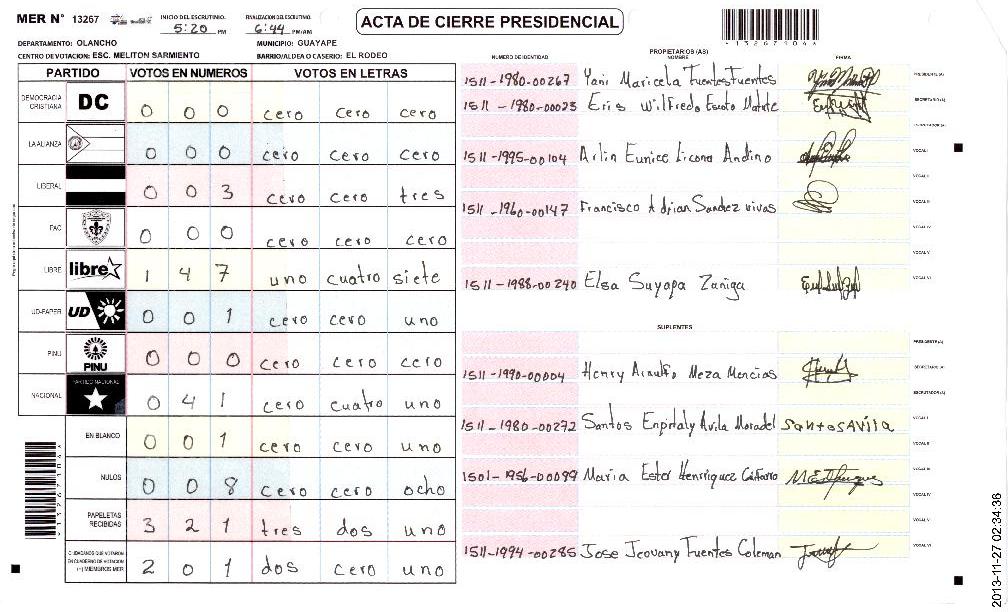 MER N° 13267 INICIO DEL ESCRUTINIO. 5:20 PM FINALIZACION DEL ESCRUTINIO. 6:44 PM/AM
ACTA DE CIERRE PRESIDENCIAL
DEPARTAMENTO: OLANCHO MUNICIPIO: GUAYAPE
CENTRO DE VOTACION: ESC. MELITON SARMIENTO BARRIO/ALDEA O CASERIO: EL RODEO
PARTIDO VOTOS EN NUMEROS VOTOS EN LETRAS
DEMOCRACIA CRISTIANA DC 0 0 0 cero cero cero
LA ALIANZA 0 0 0 cero cero cero
LIBERAL 0 0 3 cero cero tres
PAC 0 0 0 cero cero cero
LIBRE libre 1 4 7 uno cuatro siete
UD-FAPER UD 0 0 1 cero cero uno
PINU PINU 0 0 0 cero cero cero
NACIONAL PARTIDO NACIONAL 0 4 1 cero cuatro uno
EN BLANCO 0 0 1 cero cero uno
NULOS 0 0 8 cero cero ocho
PAPELETAS RECIBIDAS 3 2 1 tres dos uno
CIUDADANOS QUE VOTARON EN CUADERNO DE VOTACION (+) MIEMBROS MER 2 0 1 dos cero uno
PROPIETARIOS (AS)
NUMERO DE IDENTIDAD NOMBRE FIRMA
1511-1980-00267 Yani Maricela Fuentes Fuentes PRESIDENTE (A)
1511-1980-00023 Eris Wilfredo Escoto Matute SECRETARIO (A)
ESCRUTADOR (A)
1511-1995-00104 Arlin Eunice Licona Andino VOCAL I
VOCAL II
1511-1960-00147 Francisco Adrian Sandez vivas VOCAL III
VOCAL IV
VOCAL V
1511-1988-00240 Elsa Suyapa Zañiga VOCAL VI
SUPLENTES
PRESIDENTE (A)
1511-1990-00004 Henry Arnulfo Meza Mencias SECRETARIO (A)
ESCRUTADOR (A)
1511-1980-00272 Santos Avila Santos Avila VOCAL I
VOCAL II
1501-1956-00099 Maria Ester Henriquez VOCAL III
VOCAL IV
VOCAL V
1511-1994-00285 Jose Jeovany Fuentes Coleman VOCAL VI
2013-11-27 02:34:36